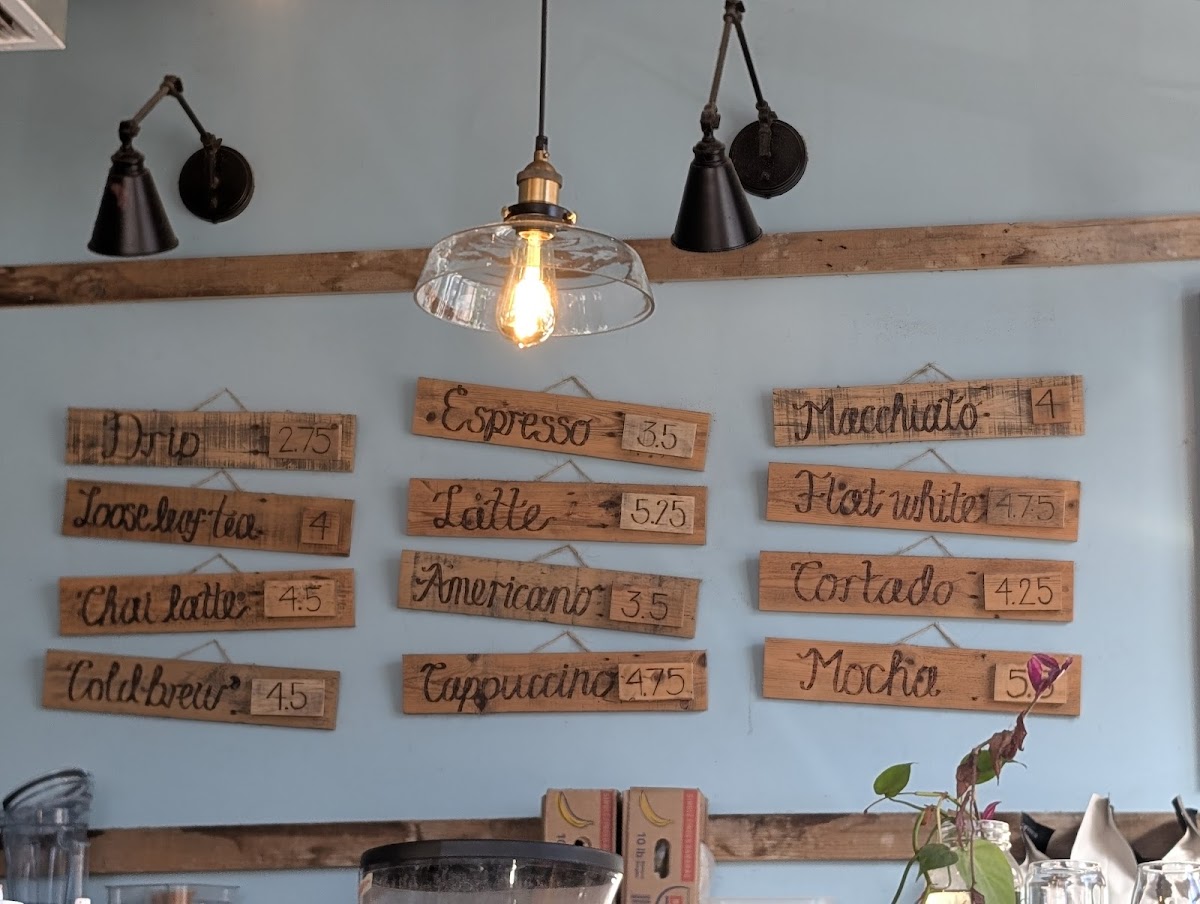 Drip 2.75
Loose leaf tea 4
Chai latte 4.5
Cold brew 4.5
Espresso 3.5
Latte 5.25
Americano 3.5
Cappuccino 4.75
Macchiato 4
Flat white 4.75
Cortado 4.25
Mocha
10 lb